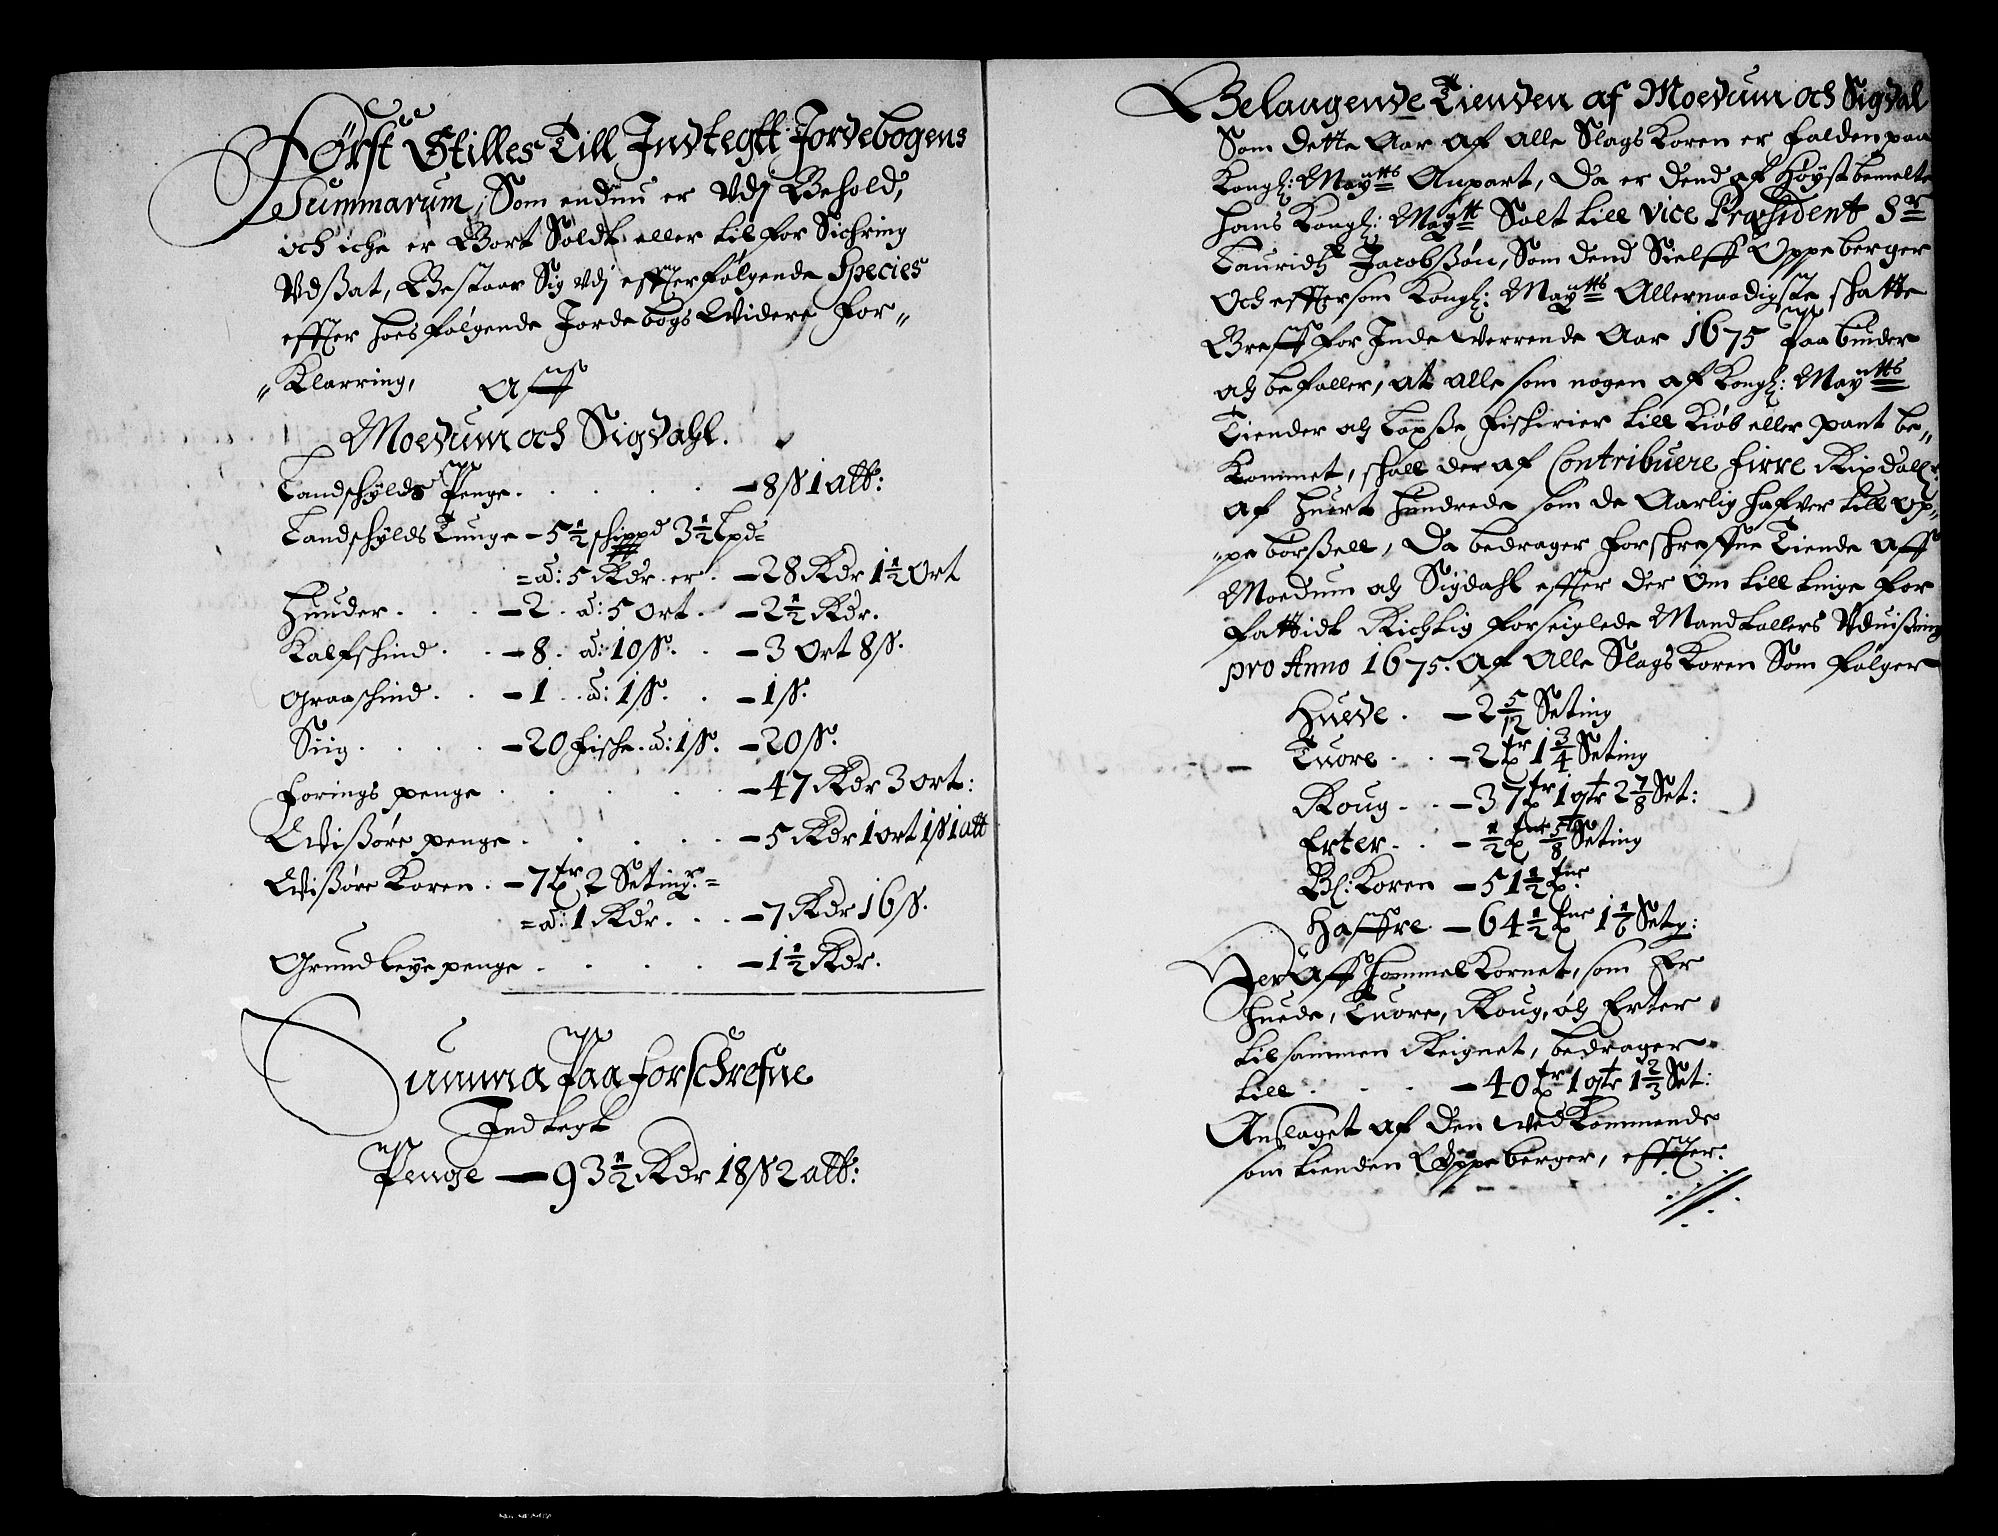 Først Stilles Till Indtegtt Jordebogens
Summarum, Som endnu er Udj Behold,
och iche er Bort Soldt eller til forSichring
Udßat, Bestaar Sig udj effterfølgende Species
effter hoesfølgende Jordebogs Widere for¬
Klarring, Aff
Moedum och Sigdahl.
Landschylds Penge. - 8 ß 1 alb:
Landschylds Tunge - 5½ schippd 3½ Lpd=
=a: 5 Rdr. er. - 28 Rdr 1½ Ort
Huuder. - 2. a: 5 ort. - 2½ Rdr.
Kalfschind. - 8. a: 10 ß. - 3 Ort 8 ß.
Graaschind. - 1. a: 1 ß. - 1 ß.
Siig. - 20 fische. a: 1 ß. - 20 ß.
forings penge - 47 Rdr 3 ort:
Wißøre penge. - 5 Rdr 1 ort 1 ß 1 alb
Wißøre Koren. - 7 tr 2 Setingr=
=a: 1 Rdr. - 7 Rdr 16 ß.
Grundleye penge. - 1½ Rdr.
Summa Paa forschrefne
Indtegt
Penge - 93½ Rdr 18 ß 2 alb:
Belangende Tienden af Moedum och Sigdal
Som dette Aar af alle Slags Koren er falden paa
Kongl: Maytts Anpart, Da er dend af Høystbemelte
hans Kongl: Maytt Solt till vice Præsident Sr
Lauridtz Jacobßøn, Som dend Sielff Oppeberger
Och efftersom Kongl: Maytts Allernaadigste schatte
Breff for Inde Werrende Aar 1675 Paabuder
och befaller, at alle som nogen af Kongl: Maytts
Tiender och Laxße fischirier till Kiøb eller pant be¬
Kommet, schall der af Contribuere firre Rixdaller
af huert hundrede som de Aarlig hafver till Op¬
pebørßell, Da bedrager forschrefne Tiende aff
Moedum och Sigdahl effter der om till tinge for
fattidt Richtig forseiglede Mandtallers Uduißning
pro Anno 1675. af Alle Slags Koren Som følger
Huede. - 2 5/12 Seting
Tuore. - 2 tr 1¾ Seting
Roug. - 37 tr 1 qtr 2 7/8 Set:
Erter. - ½ tnr 5/8 Seting
Bl: Koren - 51½ tnr.
Haffre - 64½ tnr 1 1/6 Setg:
Der Aff Hommel Kornet, som Er
Huede, Tuore, Roug, och Erter
tilsammen Reignet, bedrager
till. - 40 tr 1 qtr 1⅔ Set:
Anslaget af den wedKommende
som tienden Oppeberger, effter: